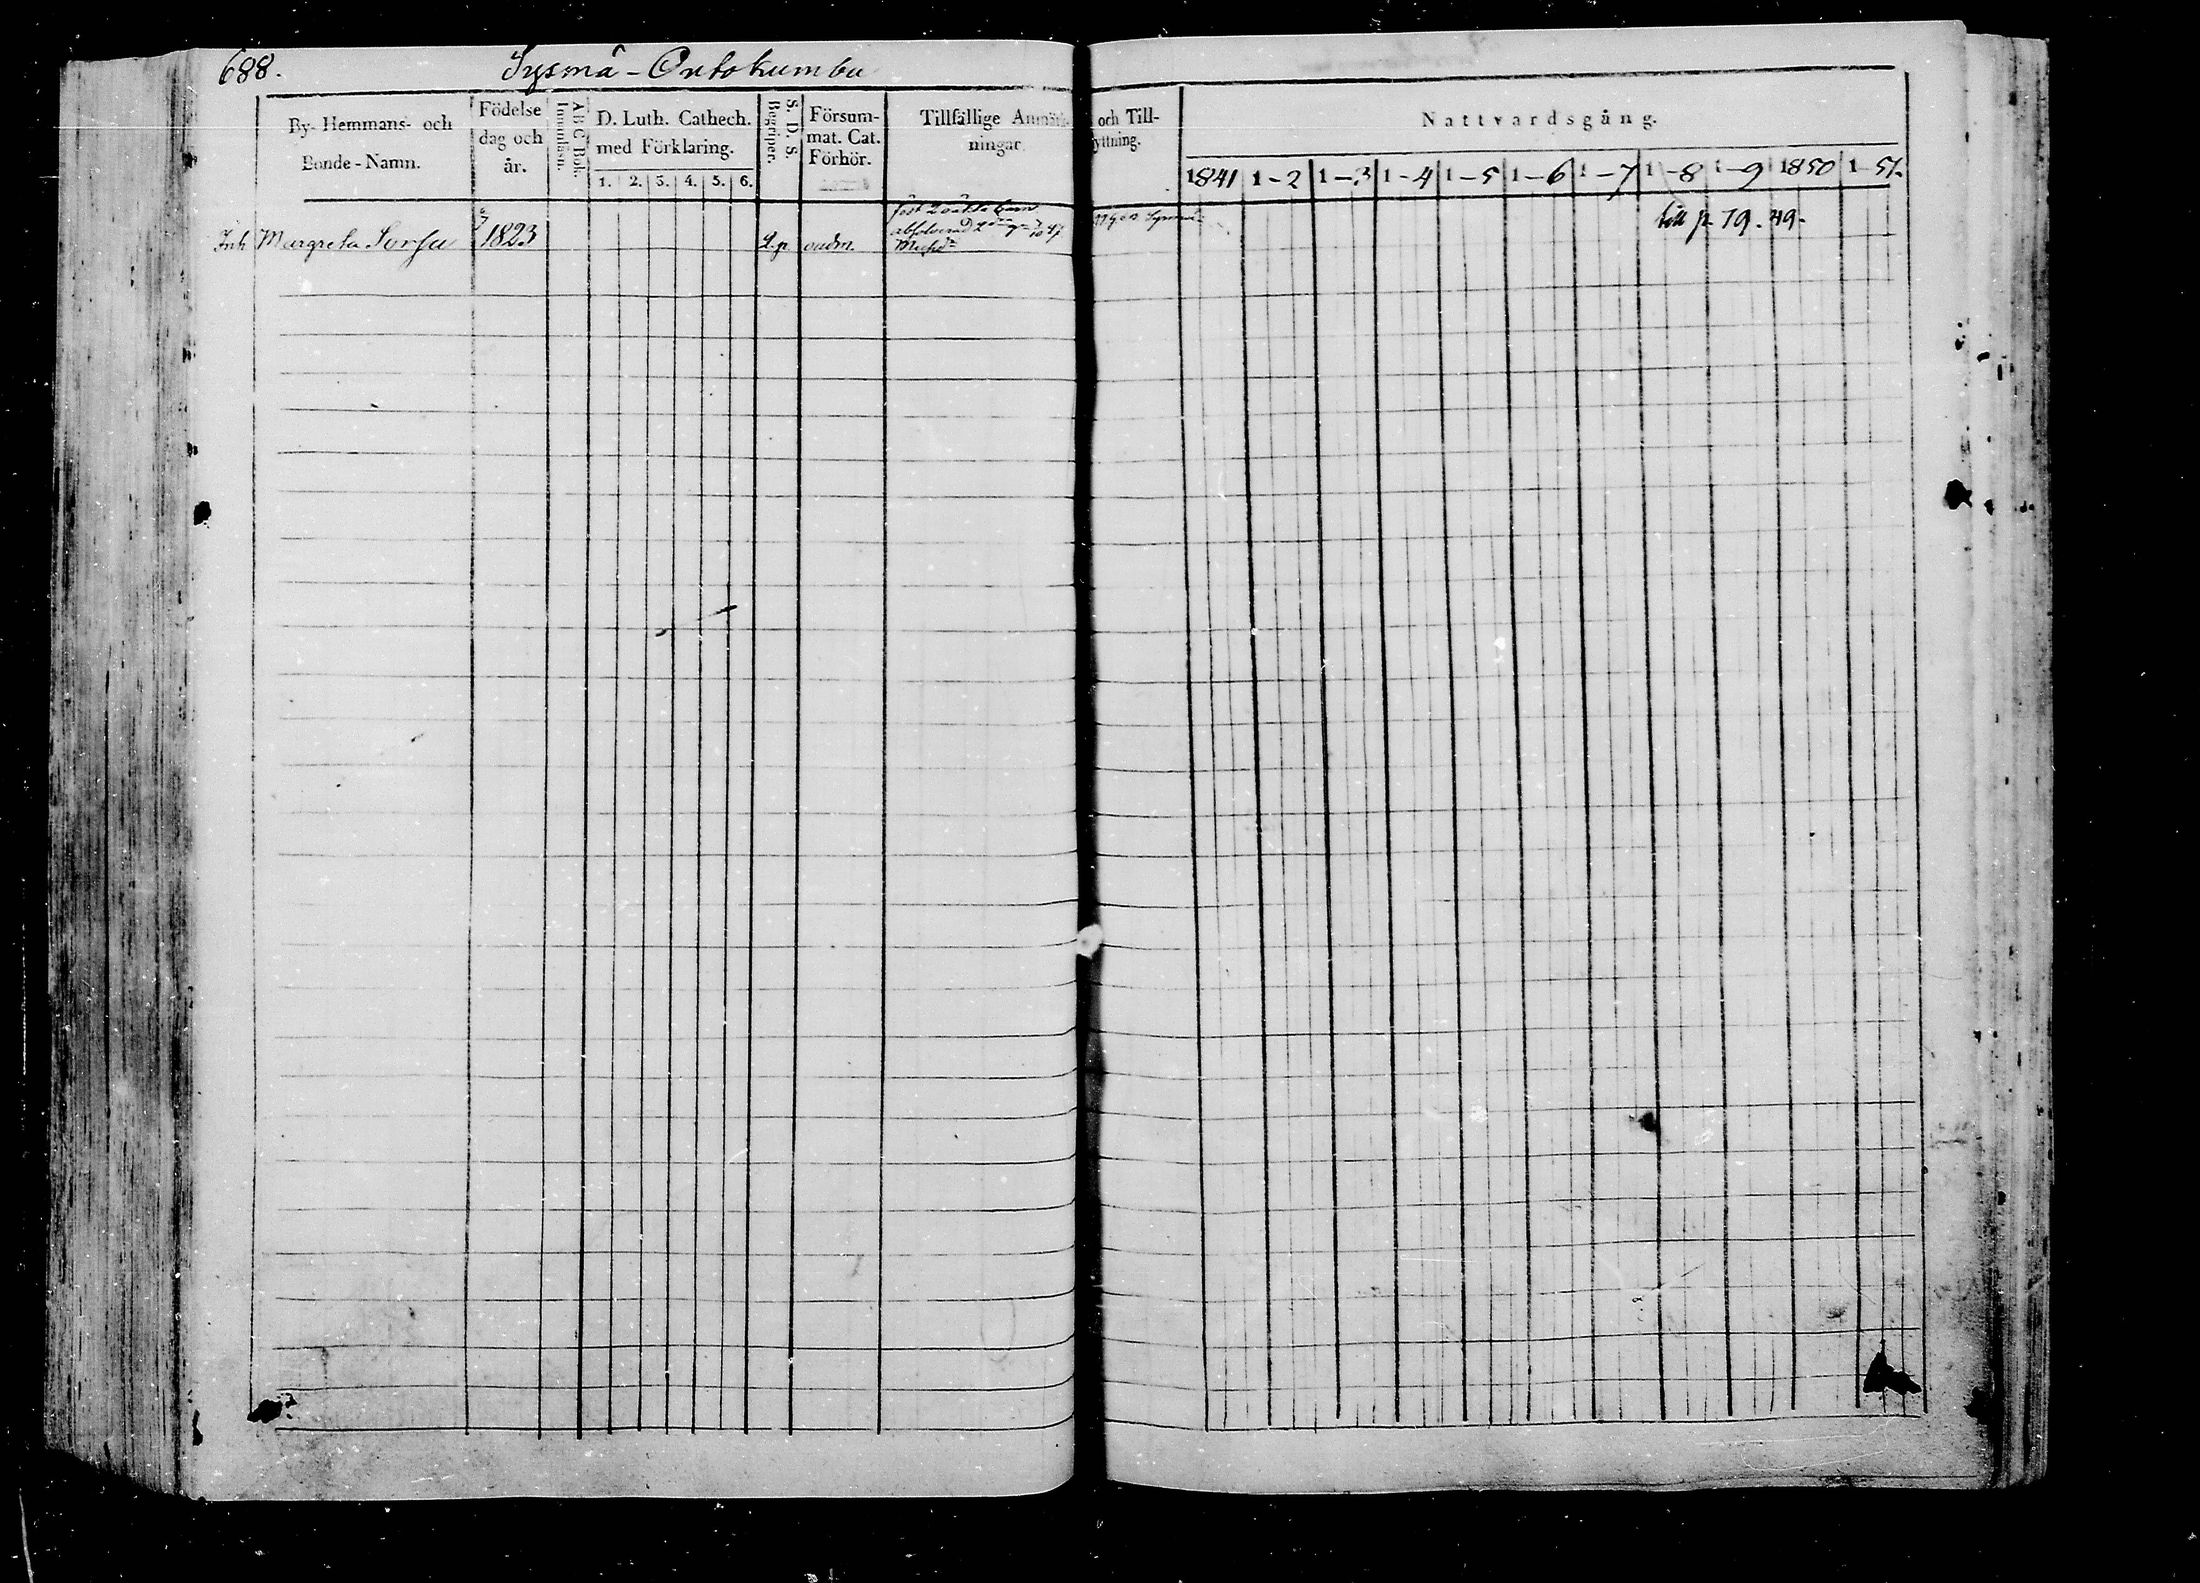 688. Sysmä - Outokumbu
By- Hemmans- och Bonde-Namn.
Födelse dag och år.
A B C Bok. Innanläsn.
D. Luth. Cathech. med Förklaring.
1. 2. 3. 4. 5. 6.
S. D. S. Begriper.
Försummat. Cat. Förhör.
Tillfällige Anmärkningar
och Till- flyttning.
Nattvardsgång.
1841 1-2 1-3 1-4 1-5 1-6 1-7 1-8 1-9 1850 1-51.
Inh Margreta Sorsa 1823
födt 2 oäkta barn
absolverad 47
Sysmä
till p. 79. 49.